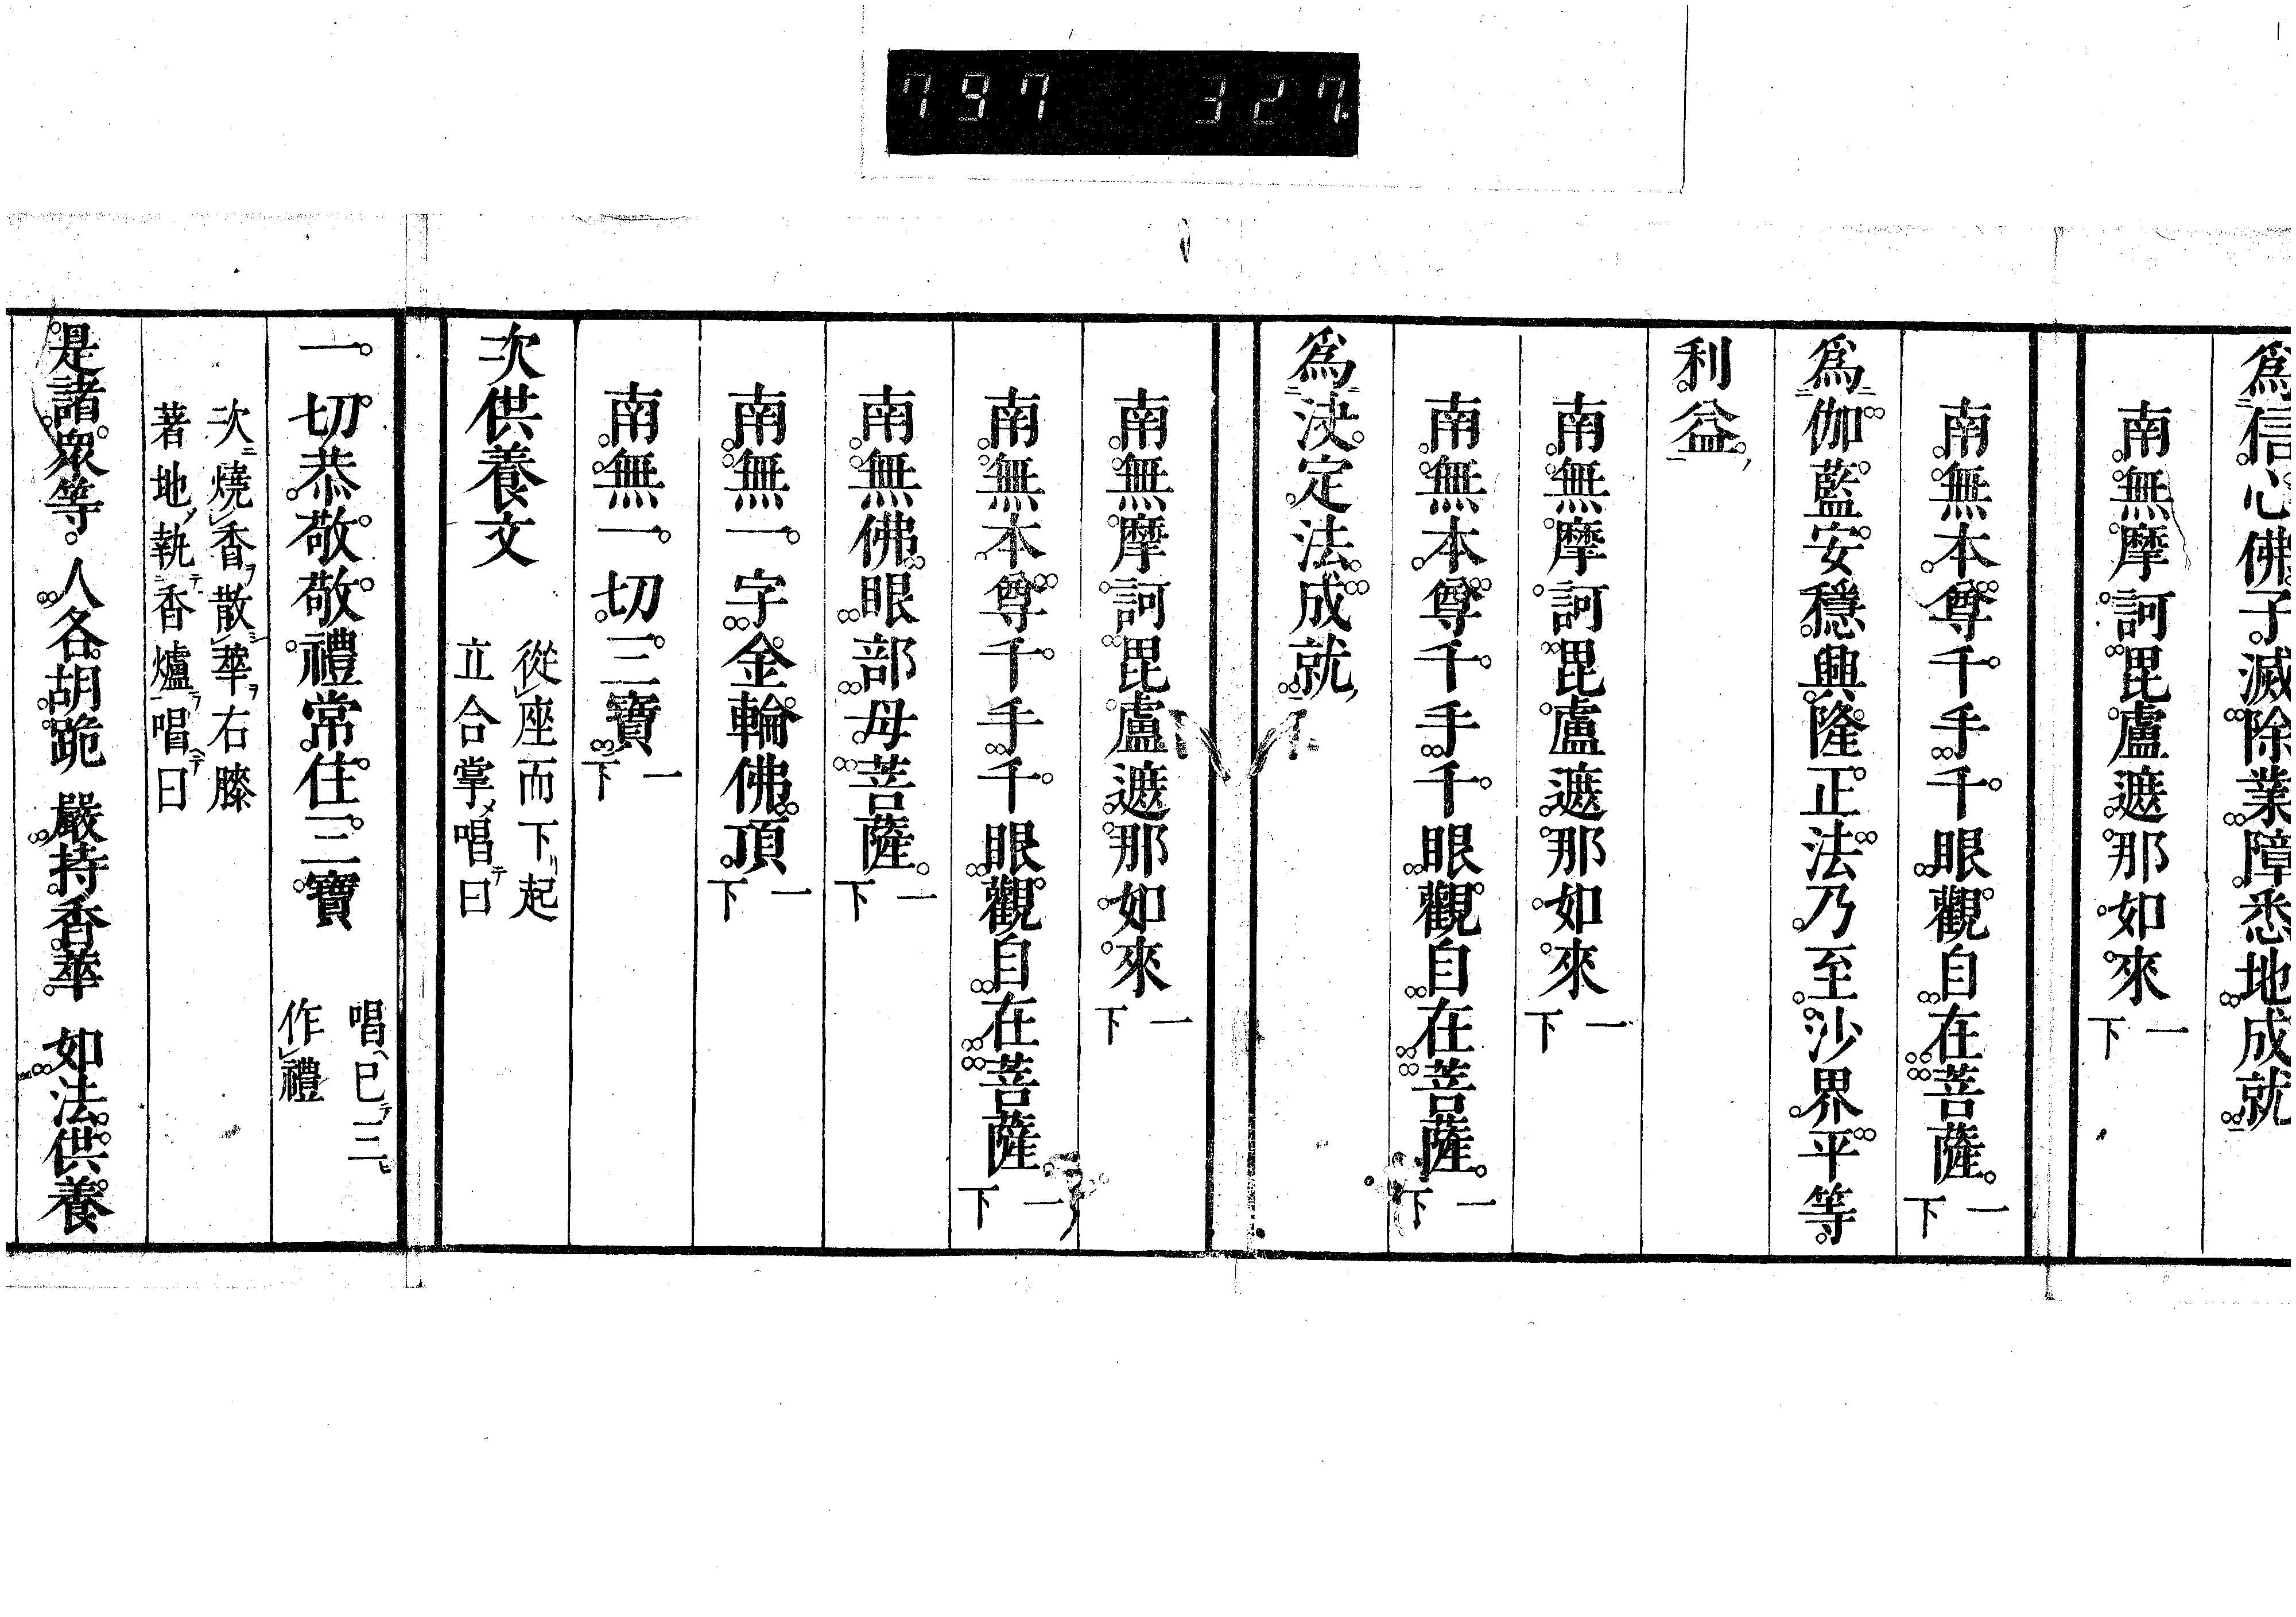 797 327
為信心佛子滅除業障悉地成就
南無摩訶毘盧遮那如來一下
南無本尊千手千眼觀自在菩薩一下
為伽藍安穩興隆正法乃至沙界平等
利益
南無摩訶毘盧遮那如來一下
南無本尊千手千眼觀自在菩薩一下
為決定法成就
南無摩訶毘盧遮那如來一下
南無本尊千手千眼觀自在菩薩一下
南無佛眼部母菩薩一下
南無一字金輪佛頂一下
南無一切三寶一下
次供養文 從座而下リ起
立合掌メ唱テ曰
一切恭敬敬禮常住三寶 唱ヘ已テ三ヒ
作禮
次ニ燒香ヲ散シ華ヲ右膝
著地執テ香爐ヲ唱ヘテ曰
是諸眾等人各胡跪 嚴持香華 如法供養